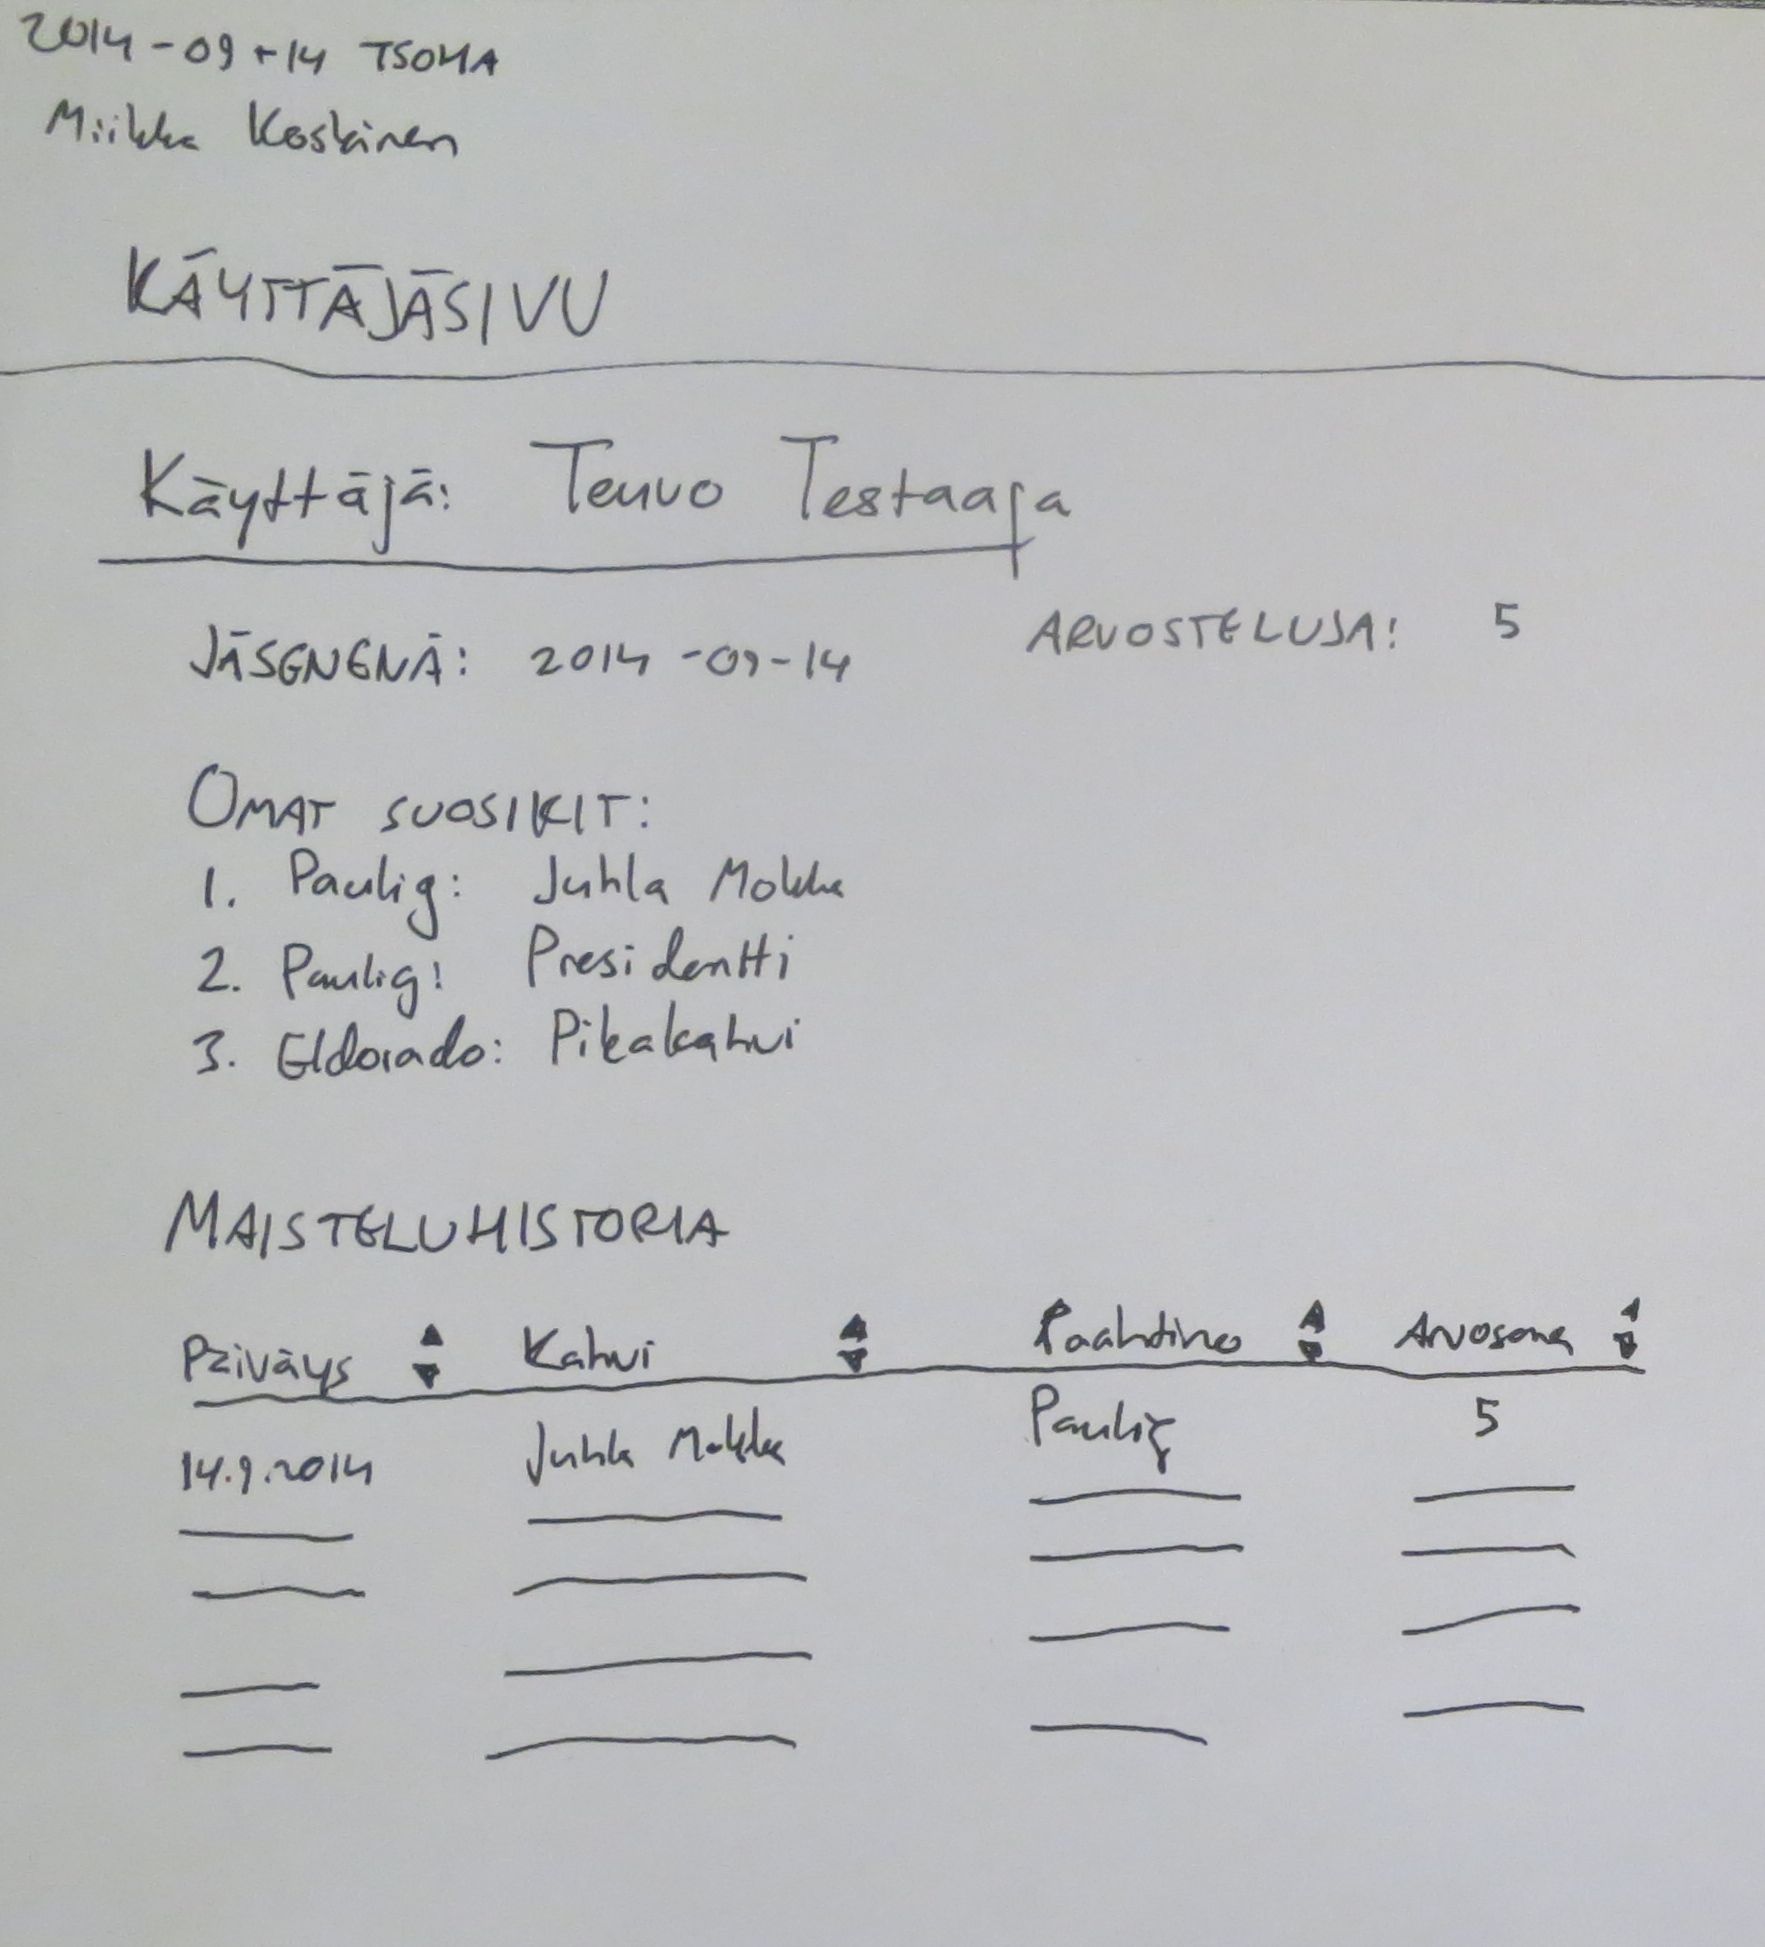 2014-09-14 TSOHA
Miikka Koskinen
KÄYTTÄJÄSIVU
Käyttäjä: Teuvo Testaaja
JÄSENENÄ: 2014-09-14 ARVOSTELUJA: 5
OMAT SUOSIKIT:
1. Paulig: Juhla Mokka
2. Paulig: Presidentti
3. Eldorado: Pikakahvi
MAISTELUHISTORIA
Päiväys Kahvi Paahtimo Arvosana
14.9.2014 Juhla Mokka Paulig 5